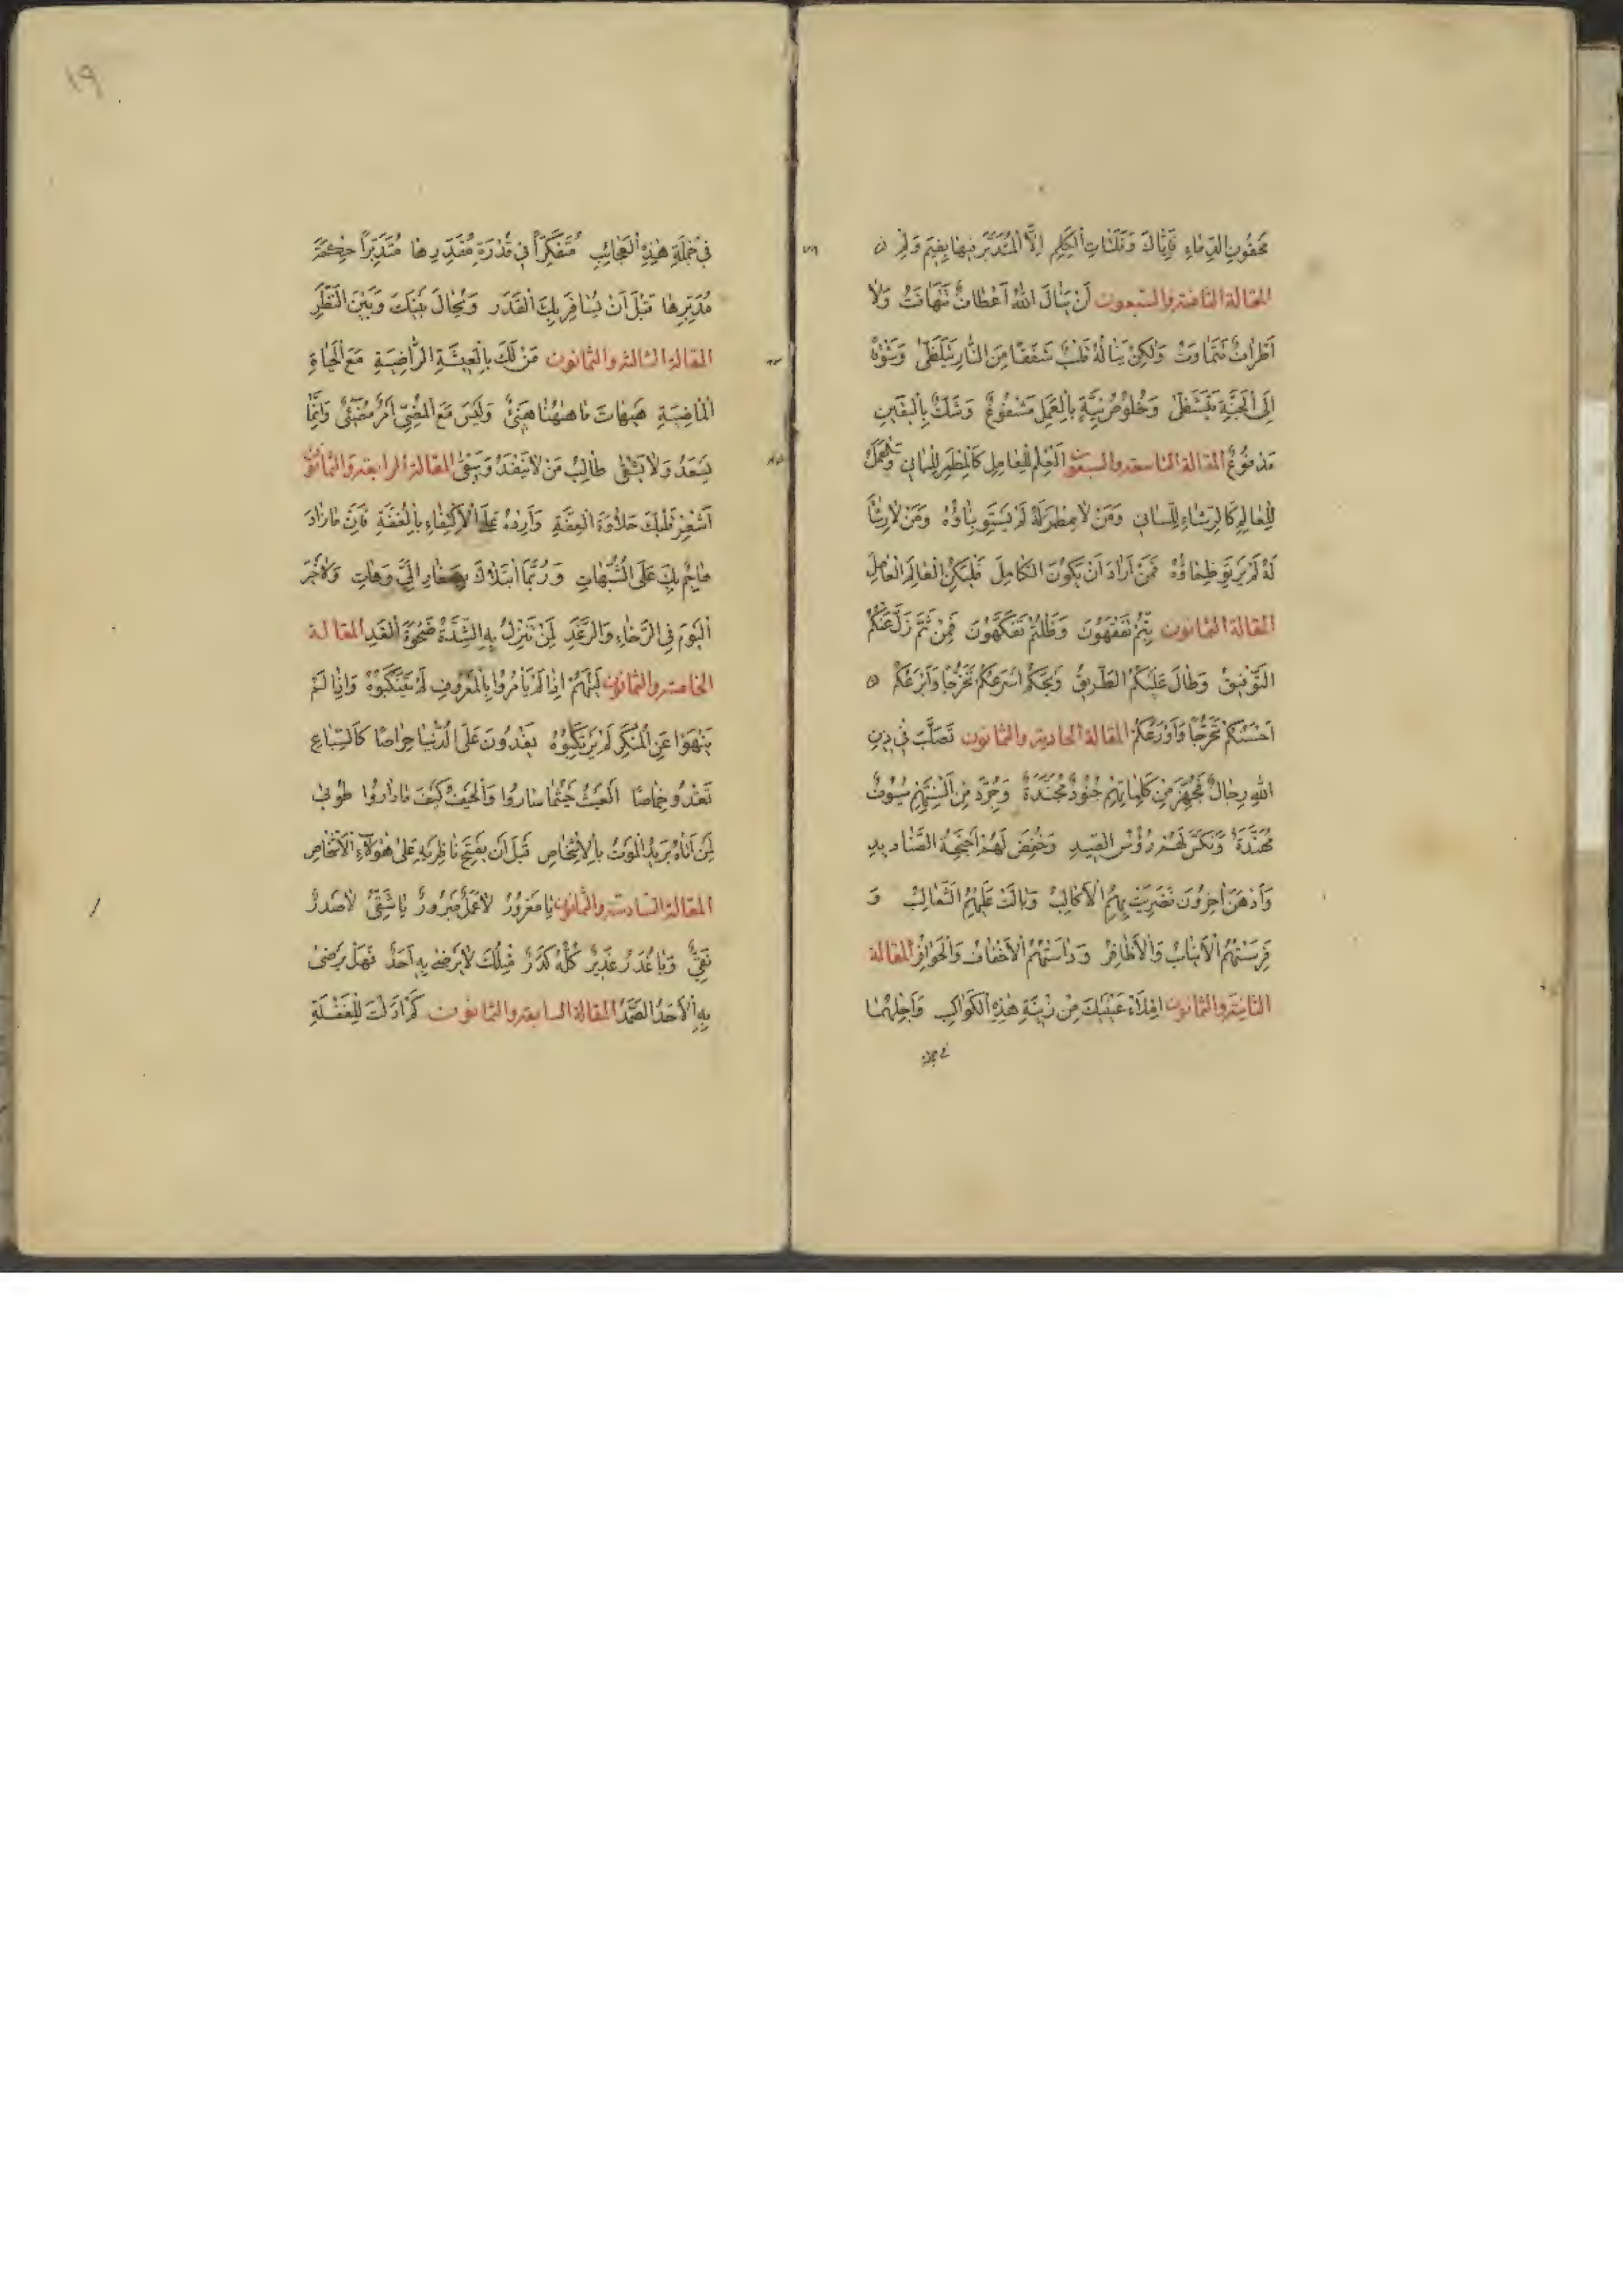 مَحقُونِ الدِّمَاءِ فَإِيَّاكَ وَفَلَتَاتِ الْكَلِمِ اِلَّا الْمُتَدَبَّرَ فِيهَا بِفِيمَ وَلِمَ
المقالة الثامنة والسبعون لَنْ يَنَالَ اللهَ أَعْطَافٌ تَتَهَافَتُ وَلَا
اَطْرَافٌ تَتَمَاوَتُ وَلٰكِنْ يَنَالُهُ قَلْبٌ شَفَقًا مِنَ النَّارِ يَتَلَظّٰى وَبِنَوْهُ
اِلَى الْجَنَّةِ يَتَشَظّٰى وَخُلُوصُ نِيَّةٍ بِالْعَمَلِ مَشْفُوعٌ وَشَكٌّ بِالْيَقِينِ
مَدْفُوعٌ المقالة التاسعة والسبعون اَلْعِلْمُ لِلعَامِلِ كَالْمِطْمَرِ لِلْبَانِي وَالْعَمَلُ
لِلْعَالِمِ كَالرِّشَاءِ لِلسَّانِي وَمَنْ لَا مِطْمَرَ لَهُ لَمْ يَسْتَوِ بِنَاؤُهُ وَمَنْ لَا رِشَاءَ
لَهُ لَمْ يَرْتَوِ ظِمَاؤُهُ فَمَنْ اَرَادَ اَنْ يَكُونَ الكَامِلَ فَلْيَكُنِ الْعَالِمَ الْعَامِلَ
المقالة الثمانون بِتُّمْ تَفَقَّهُونَ وَظَلْتُمْ تَفَكَّهُونَ فَمِنْ ثَمَّ زَلَّ عَنْكُمُ
التَّوْفِيقُ وَطَالَ عَلَيْكُمُ الطَّرِيقُ وَيْحَكُمْ اَسْرَعُكُمْ تَخَرُّجًا وَاَبْرَعُكُمْ
اَحْسَنُكُمْ تَحَرُّجًا وَاَوْرَعُكُمْ المقالة الحادية والثمانون تَصَلَّبَ فِي دِينِ
اللهِ رِجَالٌ فَجُهِّزَ مِن كَلِمَاتِهِمْ جُنُودٌ مُجَنَّدَةٌ وَجُرِّدَ مِنْ اَلْسِنَتِهِمْ سُيُوفٌ
مُهَنَّدَةٌ وَنُكِّسَ لَهُمْ رُؤُسُ الصِّيدِ وَخُفِضَ لَهُمْ اَجْنِحَةُ الصَّنَادِيدِ
وَأَدْهَنَ آخَرُونَ فَضَرِيَتْ بِهِمُ الْأَكَالِبُ وَبَالَتْ عَلَيْهِمُ الثَّعَالِبُ وَ
فَرَسَتْهُمُ الْأَنْيَابُ وَالْأَظَافِرُ وَدَاسَتْهُمُ الْأَخْفَافُ وَالْحَوَافِرُ المقالة
الثانية والثمانون اِمْلَأْ عَيْنَيْكَ مِنْ زِينَةِ هٰذِهِ الكَوَاكِبِ وَاَجِلْهُمَا
في جملة
١٩
فِي جُمْلَةِ هٰذِهِ الْعَجَائِبِ مُتَفَكِّرًا فِي قُدْرَةِ مُقَدِّرِهَا مُتَدَبِّرًا حِكْمَةَ
مُدَبِّرِهَا قَبْلَ اَنْ يُسَافِرَ بِكَ الْقَدَرُ وَيُحَالَ بَيْنَكَ وَبَيْنَ النَّظَرِ
المقالة الثالثة والثمانون مَنْ لَكَ بِالْعِيشَةِ الرَّاضِيَةِ مَعَ الْحَيَاةِ
الْمَاضِيَةِ هَيْهَاتَ مَا هٰهُنَا هَنِيئٌ وَلَيْسَ مَعَ الْمُضِيِّ اَمْرٌ مُضِيئٌ وَاِنَّمَا
يَسْعَدُ وَلَا يَشْقٰى طَالِبُ مَنْ لَا يَنْفَدُ وَيَبْقٰى المقالة الرابعة والثمانون
اَشْعِرْ قَلْبَكَ حَلَاوَةَ الْعِفَّةِ وَاَرِدْهُ عَلَى الْاِكْتِفَاءِ بِالْغُفَّةِ فَإِنَّ مَا زَادَ
هَاجِمٌ بِكَ عَلَى الشُّبُهَاتِ وَرُبَّمَا ابْتَلَاكَ بِصَغَارِ اِلَيَّ وَهَاتِ وَلَا خَيْرَ
الْيَوْمَ فِي الرَّخَاءِ وَالرَّغَدِ لِمَنْ تَنْزِلُ بِهِ الشِّدَّةُ ضَحْوَةَ الْغَدِ المقالة
الخامسة والثمانون لَيْتَهُمْ اِذَا لَمْ يَأْمُرُوا بِالْمَعْرُوفِ لَمْ يَتَنَكَّبُوهُ وَاِذَا لَمْ
يَنْهَوْا عَنِ الْمُنْكَرِ لَمْ يَرْتَكِبُوهُ يَغْدُونَ عَلَى الدُّنْيَا حِرَاصًا كَالسِّبَاعِ
تَغْدُو خِمَاصًا الْعَيْثُ حَيْثُمَا سَارُوا وَالْحَيْفُ كَيْفَ مَا دَارُوا طُوبٰى
لِمَنْ اَتَاهُ بَرِيدُ الْمَوْتِ بِالْاِشْخَاصِ قَبْلَ اَنْ يَفْتَحَ نَاظِرَيْهِ عَلٰى هٰؤُلَاءِ الْأَشْخَاصِ
المقالة السادسة والثمانون يَا مَغْرُورُ لَا عَمَلٌ مَبْرُورٌ يَا شَقِيُّ لَا صَدْرٌ
نَقِيٌّ وَيَا غُدَرُ غَدِيرٌ كُلُّهُ كَدَرٌ مِثْلُكَ لَا يَرْضٰى بِهِ اَحَدٌ فَهَلْ يَرْضٰى
بِهِ الْأَحَدُ الصَّمَدُ المقالة السابعة والثمانون كَمْ اَدَلْتَ لِلْغَفْلَةِ